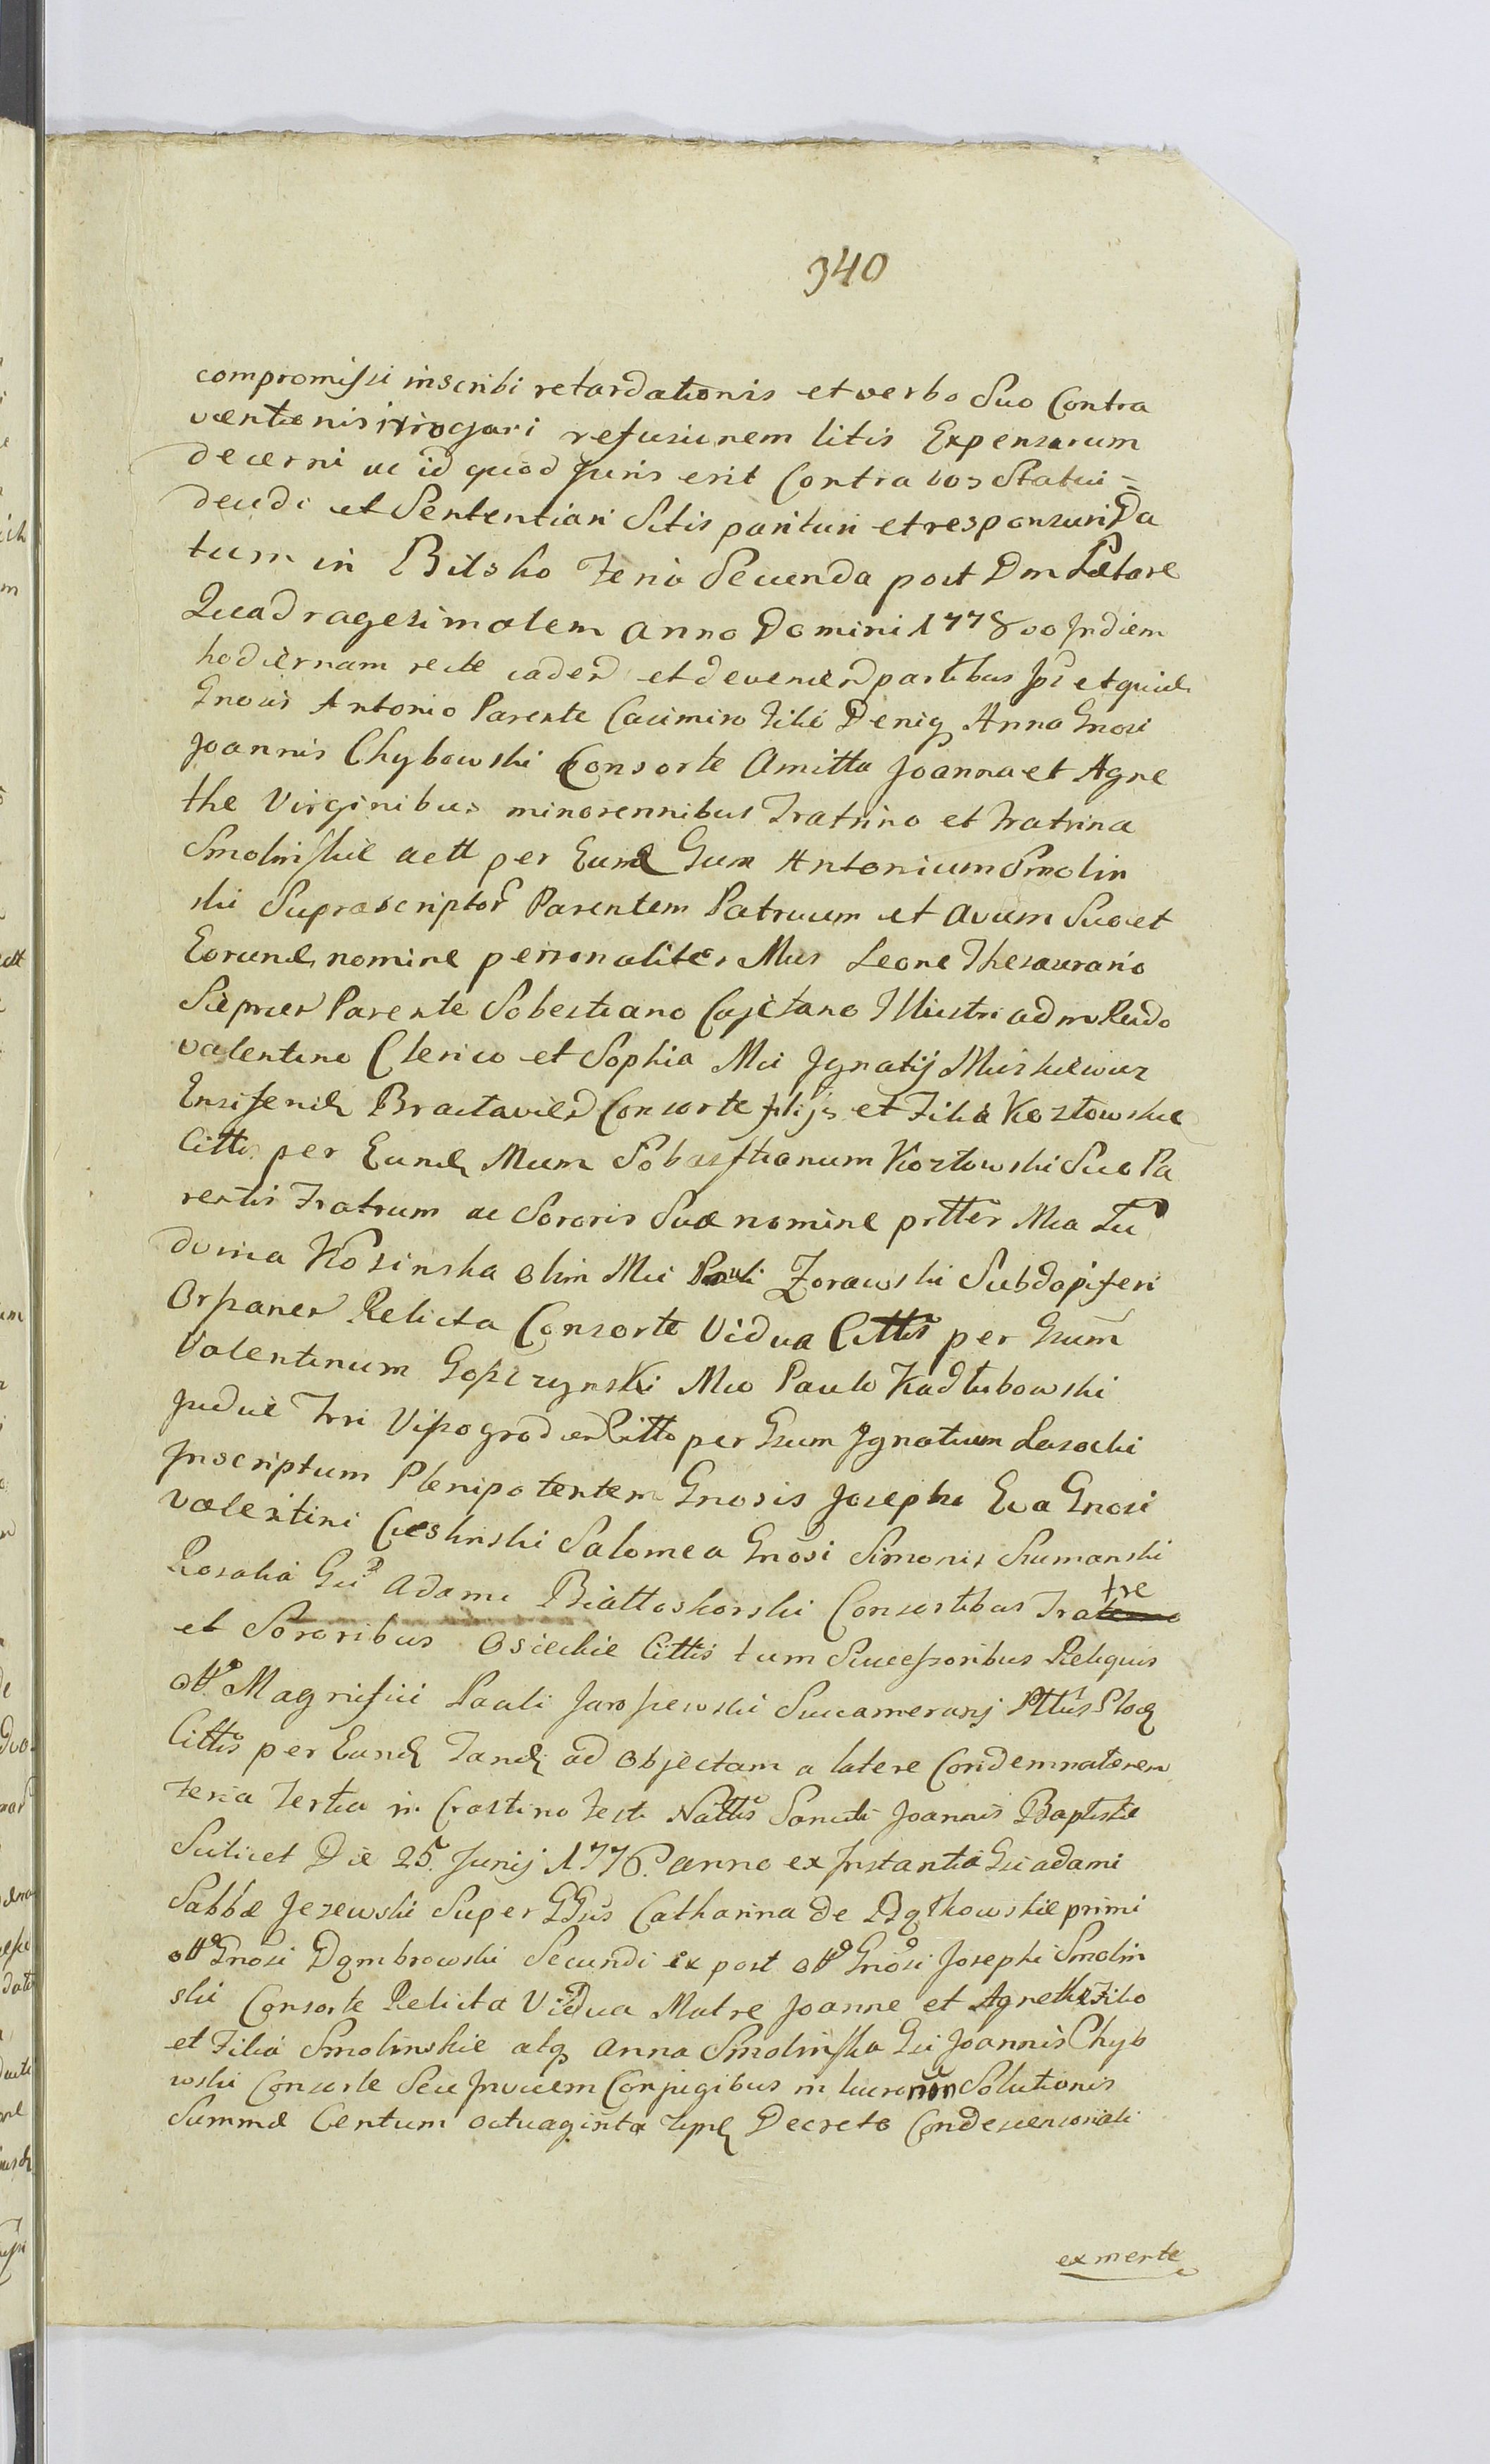 940
compromissi inscribi retardationis et verbo Suo Contra
ventionis irrogari refusionem litis Expensarum
decerni ac id quod Juris erit Contra vos Statui =
deudi et Sententiari Sitis parituri et responsuri Da
tum in Bilsko Feria Secunda post Dm Lætare
Quadragesimalem anno Domini 1778vo Indiem
hodiernam recte caden et devenien partibus Ipī et quid
Gnosis Antonio Parente Casimiro Filio Deniq Anna Gnosi
Joannis Chybowski Consorte Amitta Joanna et Agne
the Virginibus minorennibus Fratrino et Fratrina
Smolinskie actt per Eund Gum Antonium Smolin
ski Suprascriptor Parentem Patruum et avum Suo et
Eorund nomine personaliter Mus Leone Thesaurario
Sieprcen Parente Sobestiano Cajetano Illustri adm Rndo
valentino Clerico et Sophia Mci Ignatij Miskiewicz
Ensiferid Bractavien Consorte filijs et Filia Kozłowskie
Citto per Eund Mum Sobasstianum Kozłowski Suo Pa
rentis Fratrum ac Sororis Suæ nomine prtter Mca Lu
dovica Kosinska olim Mci Pauli Zorawski Subdapiferi
Orszanen Relicta Consorte Vidua Cittis per Gsum
Valentinum Gopczynski Mco Paulo Kadłubowski
Judice Trri Viszogroden Citto per Gsum Ignatium Lasocki
Inscriptum Plenipotentem Gnosis Josepho Eva Gnosi
valentini Cieslinski Salomea Gnosi Simonis Szumanski
Rosalia Gsi Adami Białłoskorski Consortibus Fratre
et Sororibus Osieckie Cittis tum Successoribus Reliquis
ott Magnifici Pauli Jaroszewski Succamerarij Pttus Plocn
Cittis per Eund Tand ad Objectam a latere Condemnatorem
Feria Tertia in Crastino Festi Nattis Sancti Joannis Baptistæ
Scilicet Die 25. Junij 1776. anno ex Instantia Gsi adami
Sabbæ Jezewski Super GGsis Catharina de Bątkowskie primi
ott Gnosi Dąmbrowski Secundi ex post ott Gnosi Josephi Smolin
ski Consorte Relicta Vidua Matre Joanne et Agnethe Filio
et Filia Smolinskie atq Anna Smolinska Gsi Joannis Chyb
wski Consorte Seu Invicem Conjugibus in lucro non Solutionis
Summæ Centum octuaginta Tynf Decreto Condescensoriali
ex mente